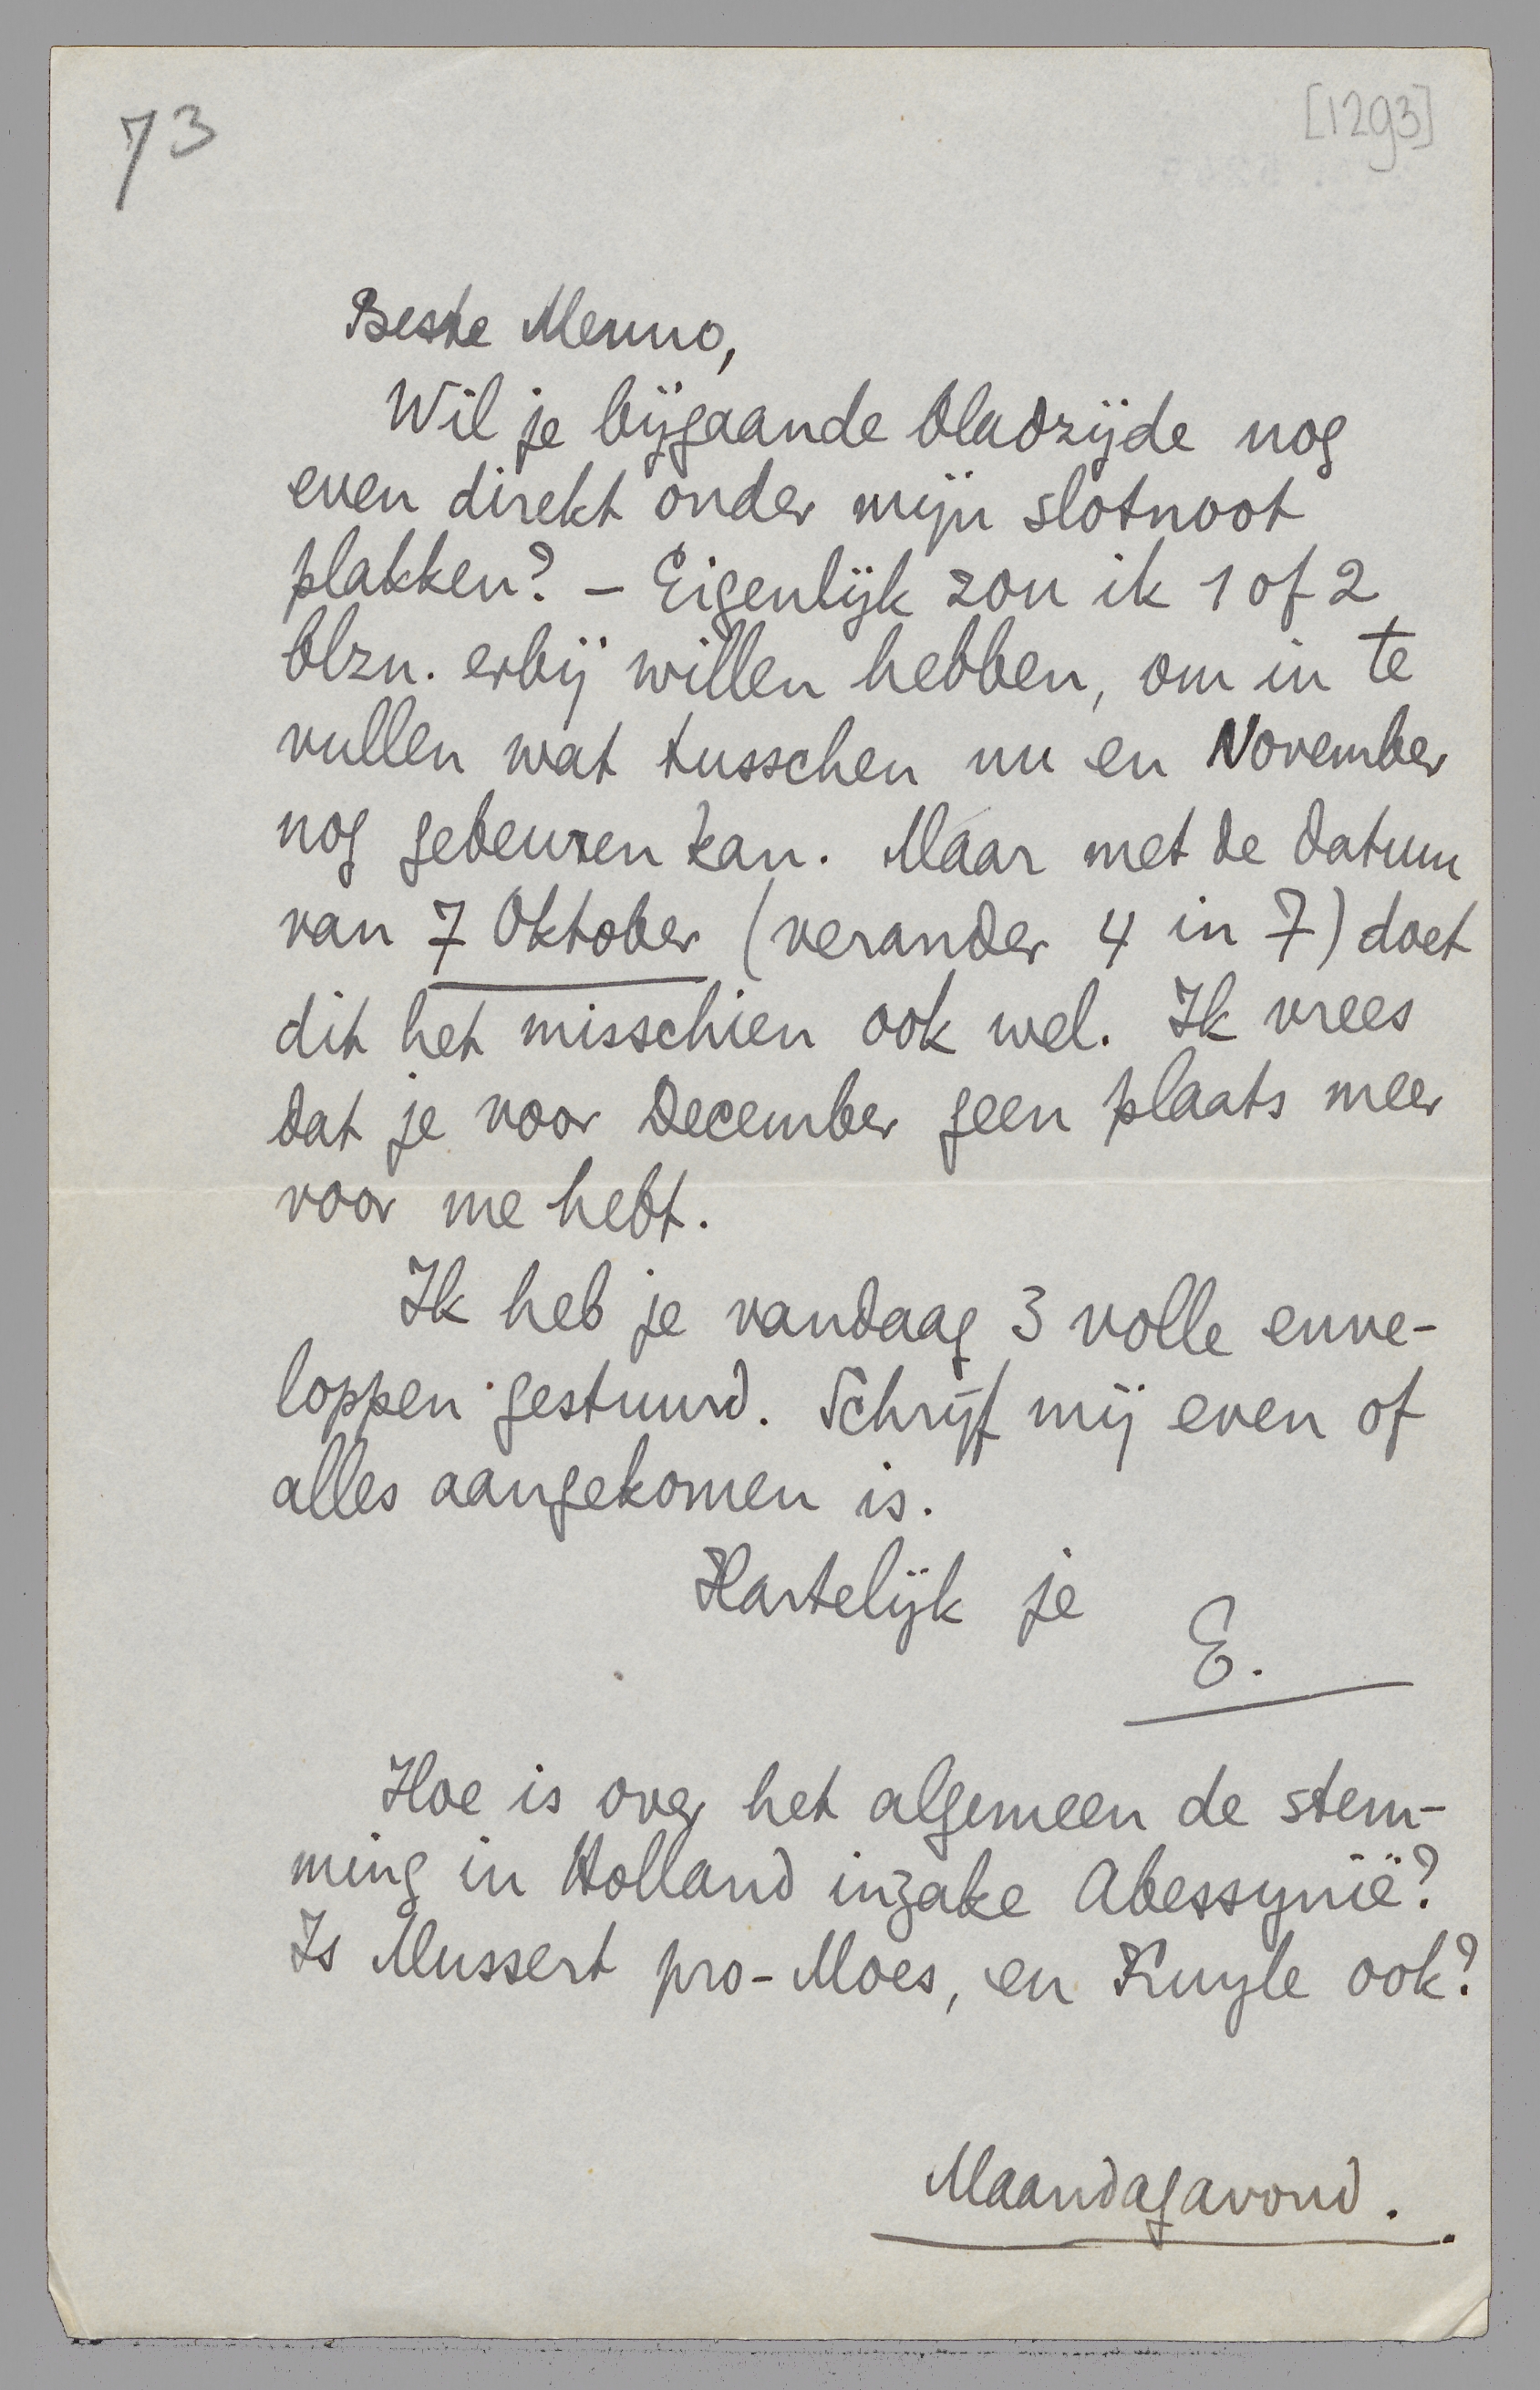 73
[1293]
Beste Menno,
Wil je bijgaande bladzijde nog
even direkt onder mijn slotnoot
plakken? – Eigenlijk zou ik 1 of 2
blzn. erbij willen hebben, om in te
vullen wat tusschen nu en November
nog gebeuren kan. Maar met de datum
van 7 Oktober (verander 4 in 7) doet
dit het misschien ook wel. Ik vrees
dat je voor December geen plaats meer
voor me hebt.
Ik heb je vandaag 3 volle enve-
loppen gestuurd. Schrijf mij even of
alles aangekomen is.
Hartelijk je
E.
Hoe is over het algemeen de stem-
ming in Holland inzake Abessynië?
Is Mussert pro-Moes, en Kuyle ook?
Maandagavond.